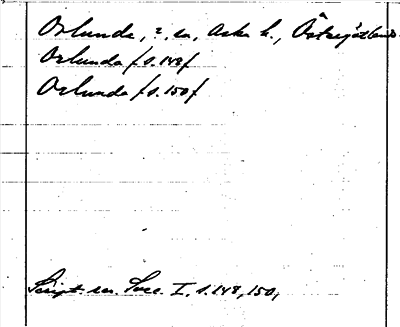 Orlunda, s:n. Aska h., Östergötland.
Orlunda /s. 148/
Orlunda /s. 150/
Script. rer. Svec. I. s. 148, 150,